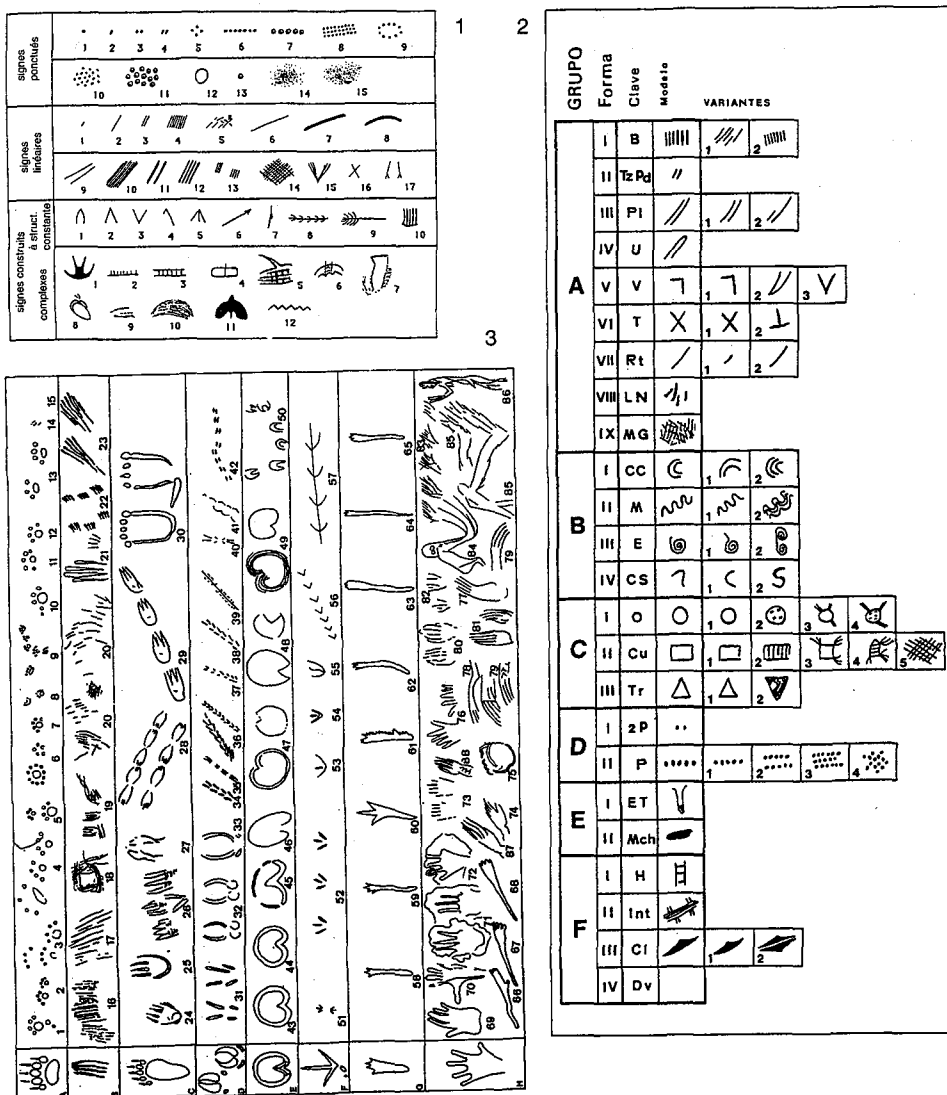 1
2
3
signes ponctués
1 2 3 4 5 6 7 8 9
10 11 12 13 14 15
signes linéaires
1 2 3 4 5 6 7 8
9 10 11 12 13 14 15 16 17
signes construits
à struct. constante
1 2 3 4 5 6 7 8 9 10
complexes
1 2 3 4 5 6 7
8 9 10 11 12
GRUPO Forma Clave Modelo VARIANTES
A
I B 1 2
II TzPd
III Pl 1 2
IV U
V V 1 2 3
VI T 1 2
VII Rt 1 2
VIII LN
IX MG
B
I CC 1 2
II M 1 2
III E 1 2
IV CS 1 2
C
I O 1 2 3 4
II Cu 1 2 3 4 5
III Tr 1 2
D
I 2P
II P 1 2 3 4
E
I ET
II Mch
F
I H
II Int
III Cl 1 2
IV Dv
A 1 2 3 4 5 6 7 8 9 10 11 12 13 14 15
B 16 17 18 19 20 20 21 22 23
C 24 25 26 27 28 29 30
D 31 32 33 34 35 36 37 38 39 40 41 42
E 43 44 45 46 47 48 49 50
F 51 52 53 54 55 56 57
G 58 59 60 61 62 63 64 65
H 69 70 66 67 68 72 87 73 74 88 75 76 78 79 80 81 82 77 84 79 83 85 85 86